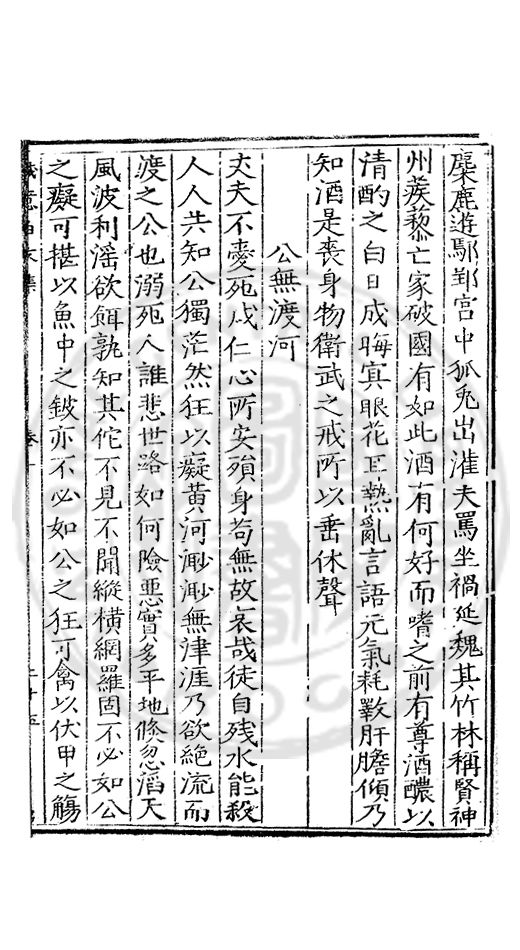 麋鹿遊鄢鄲宫中狐兎出灌夫罵坐禍延魏其竹林稱賢神
州蒺藜亡家破國有如此酒有何好而嗜之前有尊酒醲以
清酌之白日成晦冥眼花耳熱亂言語元氣耗斁肝膽傾乃
知酒是喪身物衛武之戒所以垂休聲
公無渡河
丈夫不憂死成仁心所安殞身苟無故哀哉徒自殘水能殺
人人共知公獨茫然狂以癡黄河渺渺無津涯乃欲絶流而
渡之公也溺死人誰悲世路如何險惡實多平地倏忽滔天
風波利滛欲餌孰知其佗不見不聞縱横網羅固不必如公
之癡可揕以魚中之鈹亦不必如公之狂可禽以伏甲之觴